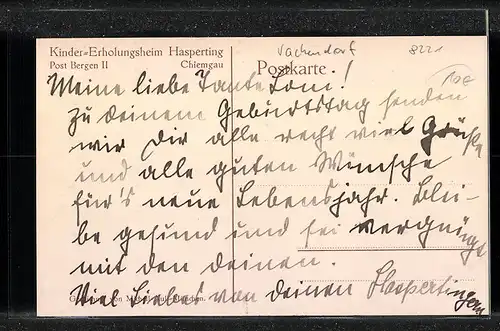 Vachendorf
8221
Kinder=Erholungsheim Hasperting
Post Bergen II Chiemgau
Postkarte
10€
Meine liebe Tante Loni!
Zu Deinem Geburtstag senden
wir Dir alle recht viel Grüße
und alle guten Wünsche
für's neue Lebensjahr. Blei-
be gesund und sei vergnügt
mit den Deinen.
Viel Liebes von Deinen Haspertingern